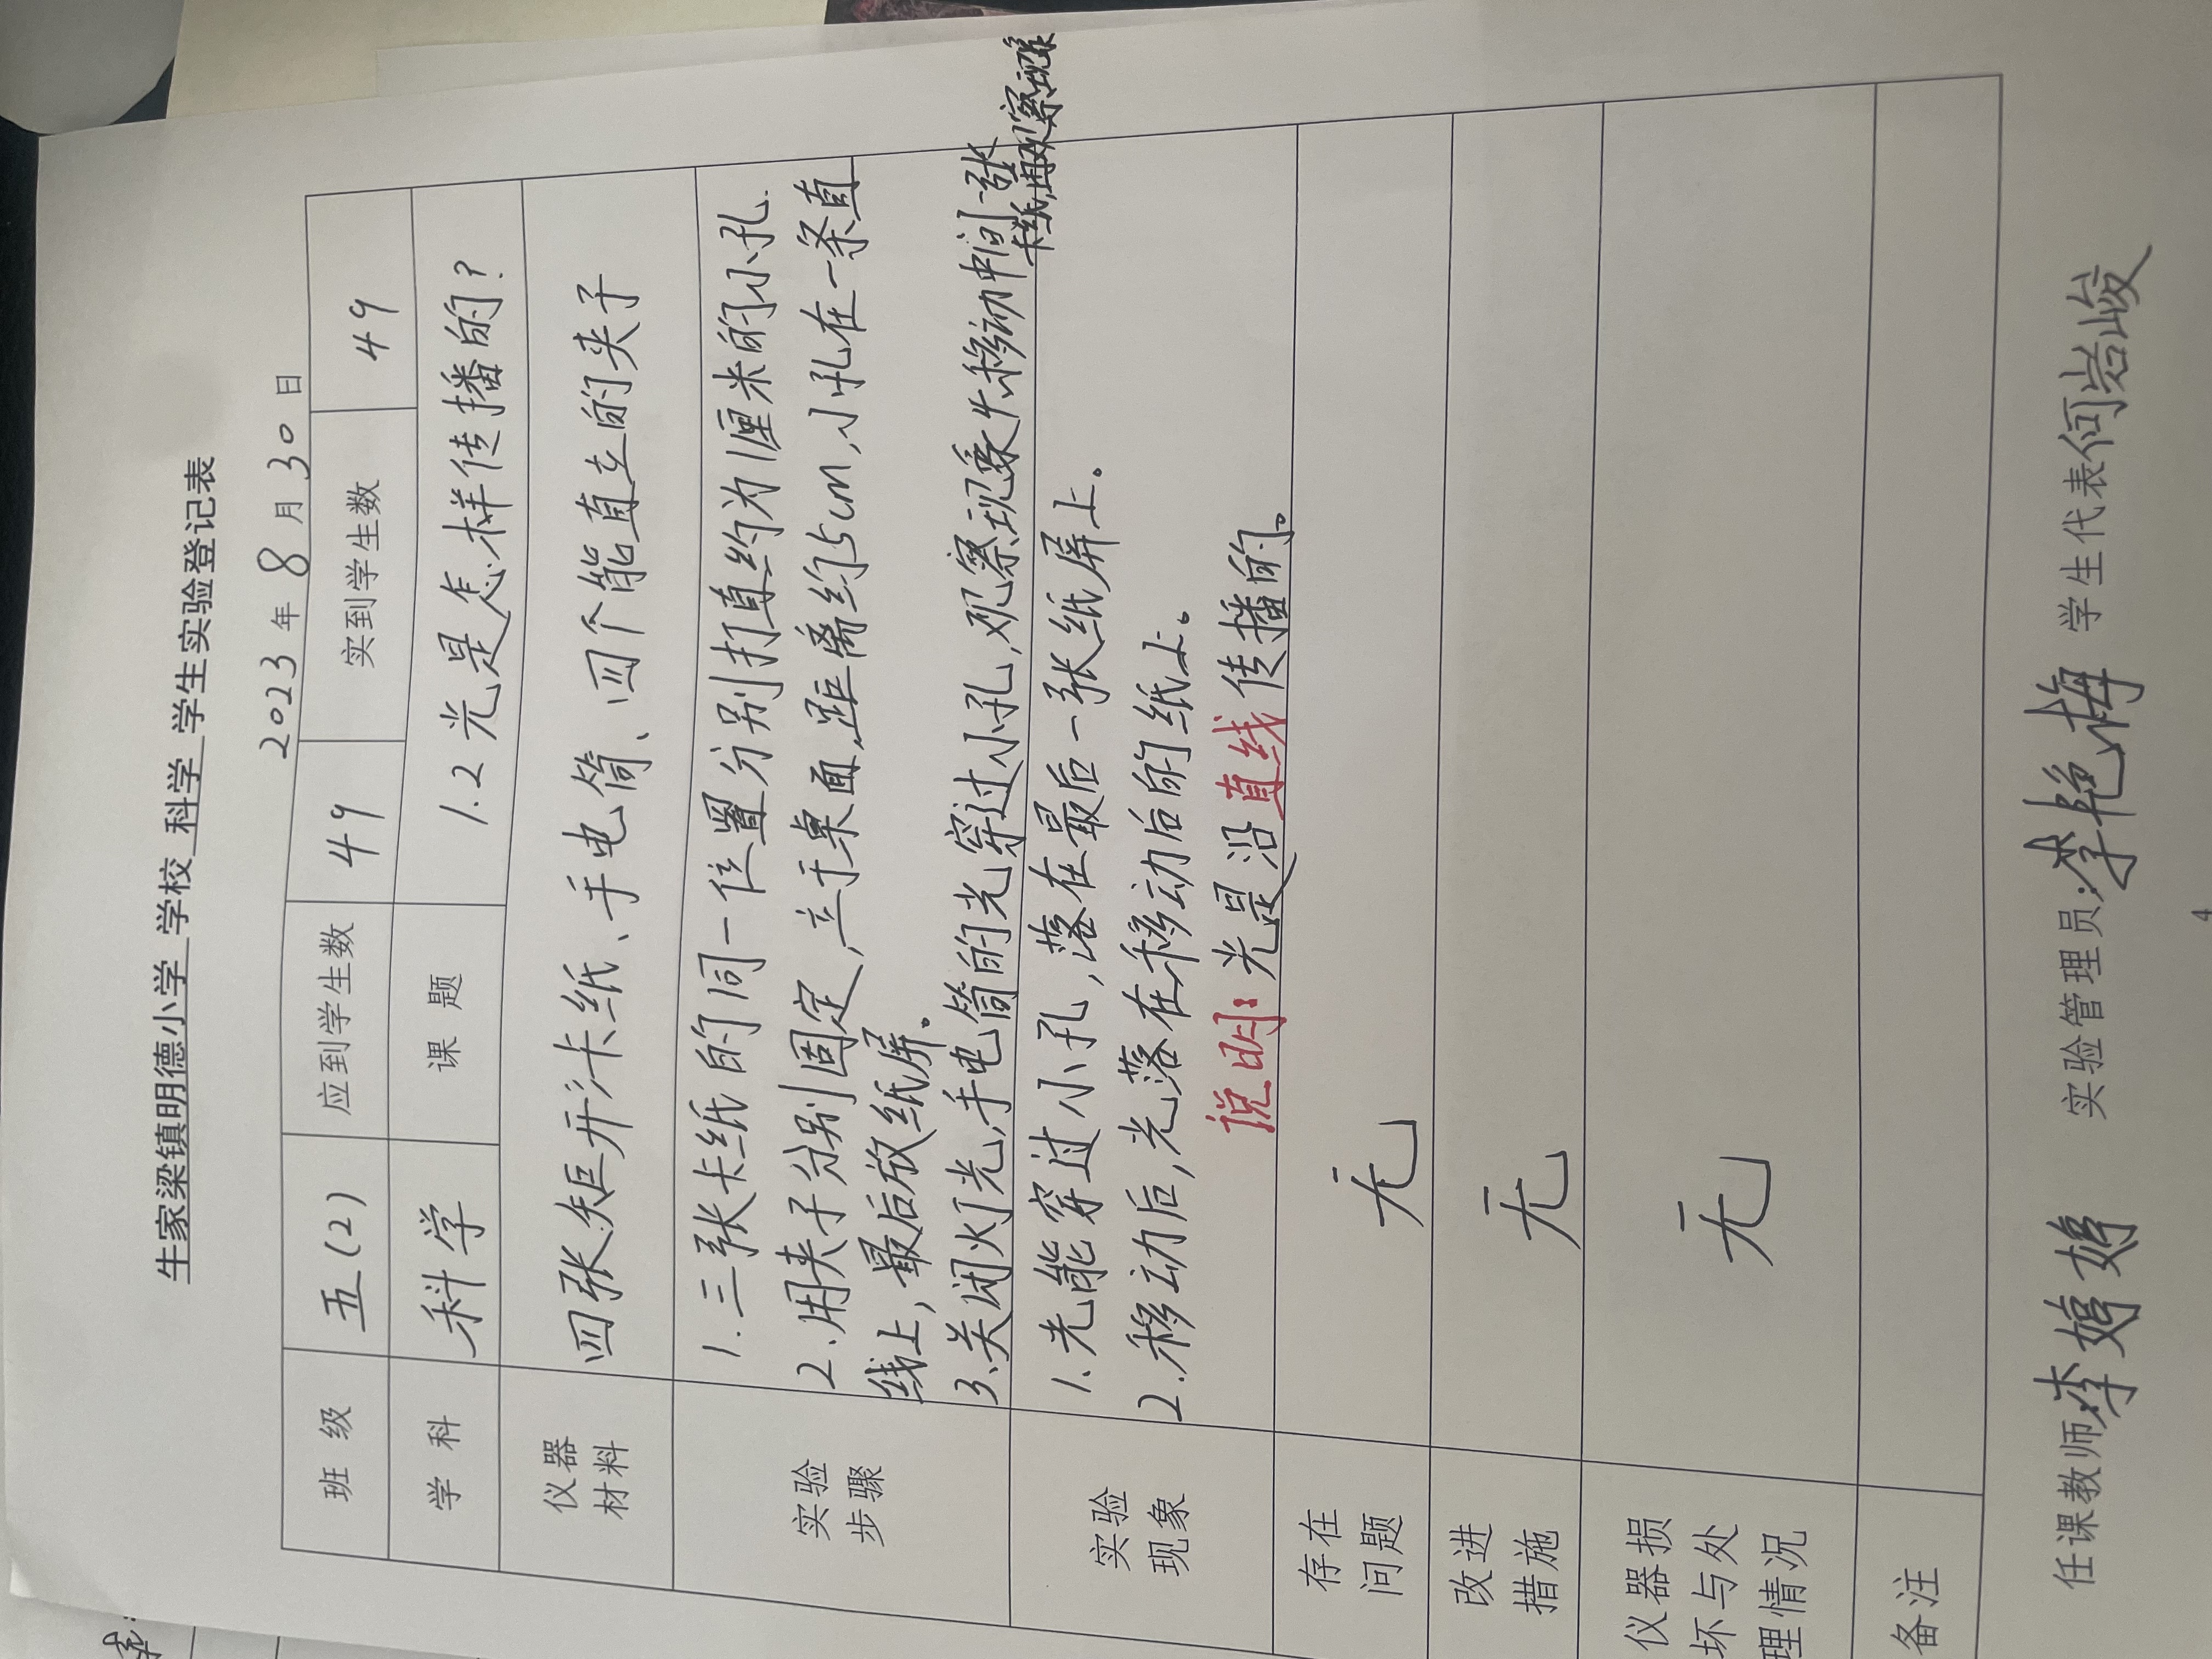 生家梁镇明德小学 学校 科学 学生实验登记表
2023年8月30日
班级 五(2) 应到学生数 49 实到学生数 49
学科 科学 课题 1.2光是怎样传播的?
仪器
材料
四张矩形卡纸、手电筒、四个能直立的夹子
实验
步骤
1.三张卡纸的同一位置分别打直约为1厘米的小孔.
2.用夹子分别固定,立于桌面,距离约15cm,小孔在一条直
线上,最后放纸屏。
3.关闭灯光,手电筒的光穿过小孔,观察现象;移动中间一张
卡纸,再观察现象
实验
现象
1.光能穿过小孔,落在最后一张纸屏上。
2.移动后,光落在移动后的纸上。
说明:光是沿直线传播的。
存在
问题
无
改进
措施
无
仪器损
坏与处
理情况
无
备注
任课教师:李婷婷 实验管理员:李艳梅 学生代表何岩峻
4